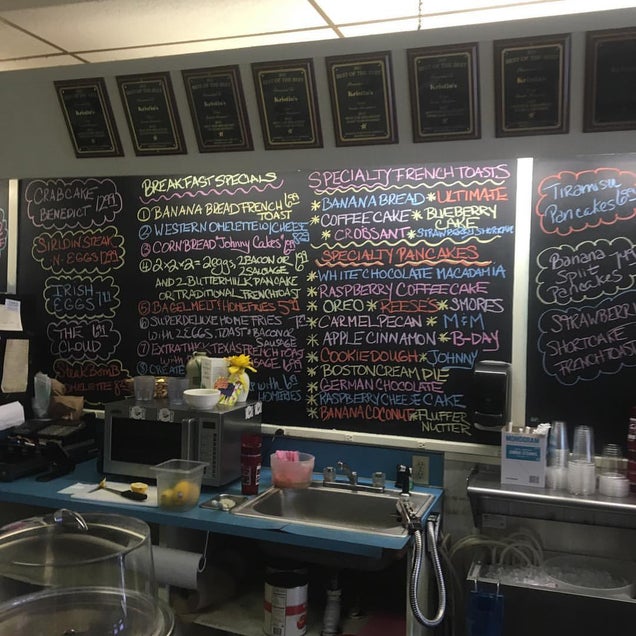 BEST OF THE BEST
Kristin's
BEST OF THE BEST
Kristin's
BEST OF THE BEST
Kristin's
BEST OF THE BEST
Kristin's
BEST OF THE BEST
Kristin's
CRABCAKE
BENEDICT 12.99
SIRLOIN STEAK
N. EGGS 12.99
IRISH
EGGS
THE
CLOUD
STEAK BOMB
OMELETTE
BREAKFAST SPECIALS
① BANANA BREAD FRENCH
TOAST
② WESTERN OMELETTE W/CHEESE
③ CORNBREAD "Johnny Cakes"
④ 2x2x2= 2 EGGS, 2 BACON OR
2 SAUSAGE
AND 2 BUTTERMILK PANCAKE
OR TRADITIONAL FRENCH TOAST
⑤ BAGEL MELT/HOMEFRIES
⑥ SUPER DELUXE HOME FRIES
WITH 2 EGGS, TOAST & BACON OR
SAUSAGE
⑦ EXTRA THICK TEXAS FRENCH TOAST
⑧ CREATE
WITH
HOMEFRIES
SPECIALTY FRENCH TOASTS
* BANANA BREAD * ULTIMATE
* COFFEE CAKE * BLUEBERRY
CAKE
* CROSSANT * STRAWBERRY SHORTCAKE
SPECIALTY PANCAKES
* WHITE CHOCOLATE MACADAMIA
* RASPBERRY COFFEE CAKE
* OREO * REESE'S * SMORES
* CARMEL PECAN * M&M
* APPLE CINNAMON * B-DAY
* COOKIE DOUGH * JOHNNY
* BOSTON CREAM PIE
* GERMAN CHOCOLATE
* RASPBERRY CHEESE CAKE
* BANANA COCONUT * FLUFFER
NUTTER
TIRAMISU
PANCAKES
Banana
Split
Pancakes
STRAWBERR
SHORTCAKE
FRENCH TOAST
MONOGRAM